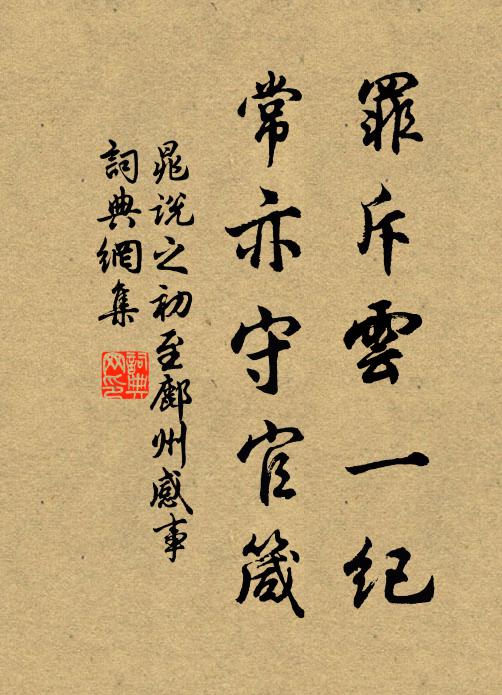 罪斥雲一紀
常亦守官箴
晁說之初至鄜州感事
詞典網集
詞典网印